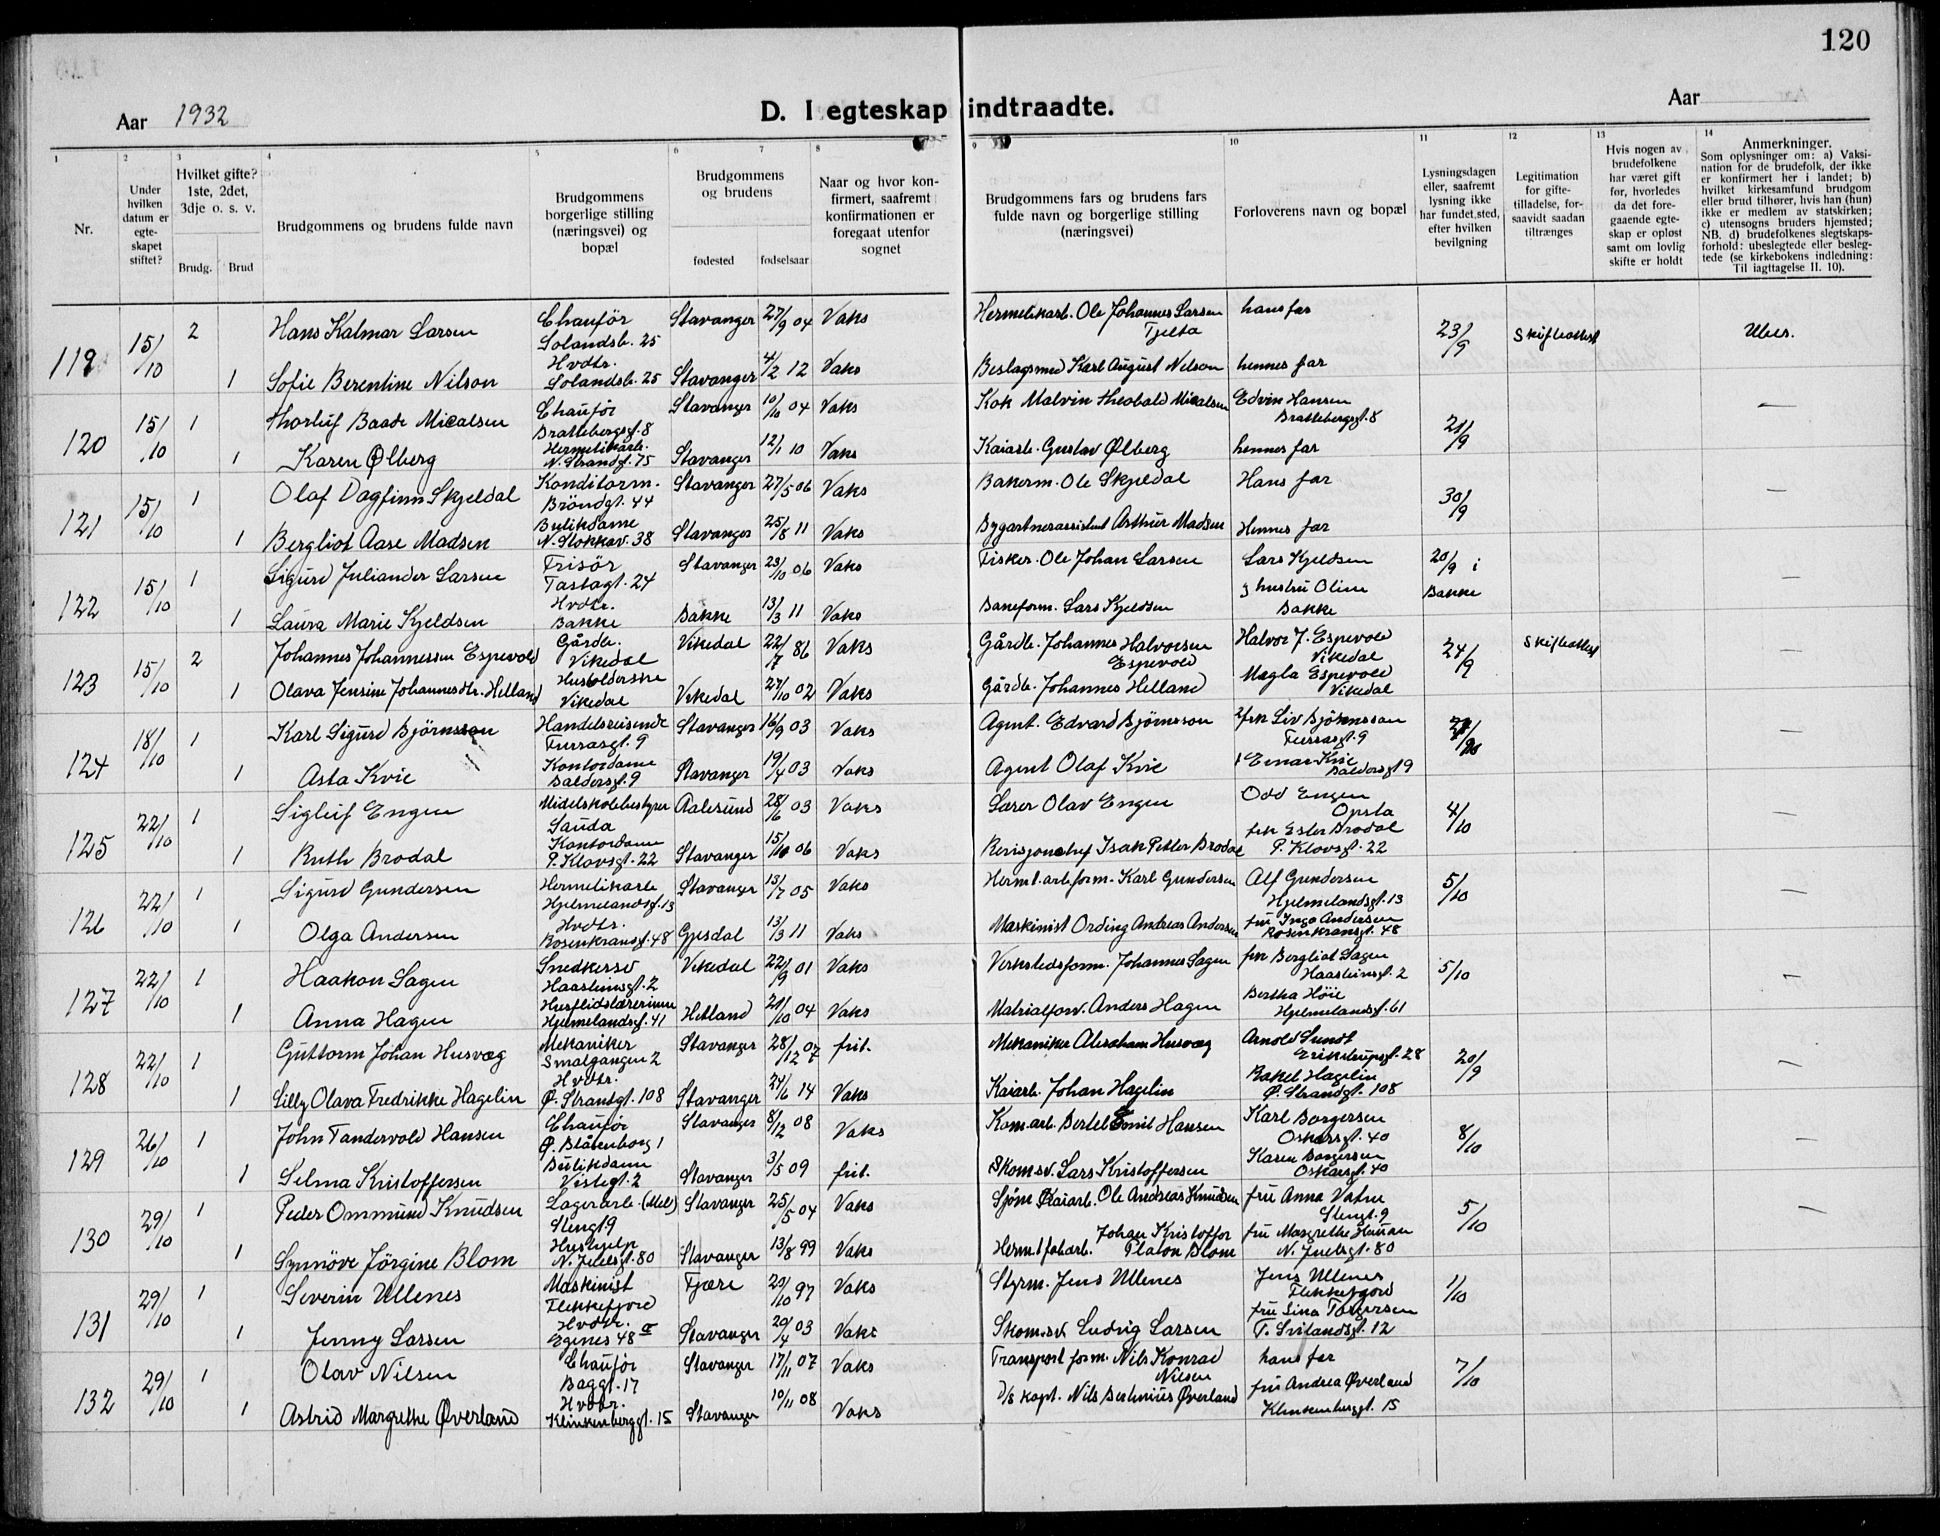 120
Aar 1932
D. I egteskap indtraadte.
Aar
1 2 3 4 5 6 7 8 9 10 11 12 13 14
Nr.
Under hvilken datum er egte-skapet stiftet?
Hvilket gifte? 1ste, 2det, 3dje o. s. v.
Brudg. Brud
Brudgommens og brudens fulde navn
Brudgommens borgerlige stilling (næringsvei) og bopæl
Brudgommens og brudens
fødested fødselsaar
Naar og hvor kon-firmert, saafremt konfirmationen er foregaat utenfor sognet
Brudgommens fars og brudens fars fulde navn og borgerlige stilling (næringsvei)
Forloverens navn og bopæl
Lysningsdagen eller, saafremt lysning ikke har fundet sted, efter hvilken bevilgning
Legitimation for gifte-tilladelse, for-saavidt saadan tiltrænges
Hvis nogen av brudefolkene har været gift før, hvorledes da det fore-gaaende egte-skap er opløst samt om lovlig skifte er holdt
Anmerkninger.
Som oplysninger om: a) Vaksi-nation for de brudefolk, der ikke er konfirmert her i landet; b) hvilket kirkesamfund brudgom eller brud tilhører, hvis han (hun) ikke er medlem av statskirken; c) utensogns bruders hjemsted; NB. d) brudefolkenes slegtskaps-forhold: ubeslegtede eller besleg-tede (se kirkebokens indledning: Til iagttagelse II. 10).
119 15/10 2 Hans Kalmar Larsen Chauför Solandsb. 25 Stavanger 27/9 04 Vaks Hermetikarb. Ole Johannes Larsen Tjelta hans far 23/9 Skifteattest Ubes.
1 Sofie Berentine Nilson Hvdtr. Solandsb. 25 Stavanger 4/2 12 Vaks Beslagsmed Karl August Nelson hennes far
120 15/10 1 Thorluf Baade Micalsen Chauför Brattebergsgt. 8 Stavanger 10/10 04 Vaks Kok Malvin Theobald Micalsen Edvin Hansen Brattebergsgt. 8 21/9 —
1 Karen Ølberg Hermetikarb. N. Strandgt. 75 Stavanger 12/1 10 Vaks Kaiarb. Gustav Ølberg hennes far
121 15/10 1 Olaf Dagfinn Skjeldal Konditorm. Bröndgt. 44 Stavanger 27/5 06 Vaks Bakerm. Ole Skjeldal Hans far 30/9 —
1 Bergliot Aase Madsen Butikdame N. Stokkav. 38 Stavanger 25/8 11 Vaks Bygartnerassistent Arthur Madsen Hennes far
122 15/10 1 Sigurd Juliander Larsen Frisör Tastagt. 24 Stavanger 23/10 06 Vaks Fisker Ole Johan Larsen Lars Kjeldsen 20/9 i —
1 Laura Marie Kjeldsen Hvdtr. Bakke Bakke 13/3 11 Vaks Baneform. Lars Kjeldsen g hustru Oline Bakke Bakke
123 15/10 2 Johannes Johannessen Espevold Gårdb. Vikedal Vikedal 22/7 86 Vaks Gårdb. Johannes Halvorsen Espevold Halvor J. Espevold Vikedal 24/9 Skifteattest —
1 Olava Jensine Johannesdtr. Helland Husholderske Vikedal Vikedal 27/10 02 Vaks Gårdb. Johannes Helland Magla Espevold Vikedal
124 18/10 1 Karl Sigurd Björnsson Handelsreisende Furrasgt. 9 Stavanger 16/9 03 Vaks Agent. Edvard Björnsson frk Liv Björnsson Furrasgt. 9 —
1 Asta Kvie Kontordame Baldersgt. 9 Stavanger 19/4 03 Vaks Agent Olaf Kvie Einar Kvie Baldersgt 9
125 22/10 1 Sigluf Engen Midelskolebestyrer Sauda Aalesund 28/6 03 Vaks Lærer Olav Engen Odd Engen 4/10 —
1 Ruth Brodal Kontordame P. Klovsgt. 22 Stavanger 15/10 06 Vaks Revisjonschef Isak Petter Brodal frk Ester Brodal P. Klovsgt. 22
126 22/10 1 Sigurd Gundersen Hermetikarb Hjelmelandsgt. 13 Stavanger 13/7 05 Vaks Hermt. arb.form. Karl Gundersen Alf Gundersen Hjelmelandsgt. 13 5/10 —
1 Olga Andersen Hvdtr. Rosenkransgt. 48 Gjesdal 13/3 11 Vaks Maskinist Ording Andreas Andersen fru Inga Andersen Rosenkransgt. 48
127 22/10 1 Haakon Sagen Snedkersv Haasteinsgt. 2 Vikedal 22/9 01 Vaks Verkstedsform. Johannes Sagen frk Bergliot Sagen Haasteinsgt. 2 5/10 —
1 Anna Hagen Husflidslærerinne Hjelmelandsgt. 41 Hetland 21/10 04 Vaks Matrialforv. Anders Hagen Bertha Höie Hjelmelandsgt. 61
128 22/10 1 Guttorm Johan Husvæg Mekaniker Smalgangen 2 Stavanger 28/12 07 frit. Mekaniker Abraham Husvæg Arnold Sundt 20/9 —
1 Lilly Olava Fredrikke Hagelin Hvdtr. Ø. Strandgt. 108 Stavanger 24/6 14 Vaks Kaiarb. Johan Hagelin Rakel Hagelin Ø. Strandgt. 108
129 26/10 1 John Tandervold Hansen Chauför Ø. Blåsenborg 1 Stavanger 8/12 08 Vaks Kom.arb. Bertel Emil Hansen Karl Borgersen Oskarsgt. 40 8/10 —
1 Selma Kristoffersen Butikdame Vistegt. 2 Stavanger 3/5 09 frit. Skom.sv. Lars Kristoffersen Karen Borgersen Oskarsgt. 40
130 29/10 1 Peder Ommund Knudsen Lagerarb. (Mel) Stengt. 9 Stavanger 25/5 04 Vaks Sjöm Kaiarb. Ole Andreas Knudsen fru Anna Vatne Stengt. 9 5/10 —
1 Synnöve Jörgine Blom Hushjelp N. Juelsgt. 80 Stavanger 13/8 99 Vaks Hermt.fabarb. Johan Kristoffer Platon Blom fru Margrethe Hauan N. Juelsgt. 80
131 29/10 1 Severin Ullenes Maskinist Flekkefjord Fjære 20/10 97 Vaks Styrm. Jens Ullenes Jens Ullenes Flekkefjord 1/10
1 Jenny Larsen Hvdtr. Egenes 48 II Stavanger 20/4 03 Vaks Skom.sv. Ludvig Larsen fru Lina Torgersen T. Svilandsgt. 12
132 29/10 1 Olav Nilsen Chauför Baggt. 17 Stavanger 17/11 07 Vaks Transport form. Nils Konrad Nilsen hans far 7/10
1 Astrid Margrethe Øverland Hvdtr. Klinkenberggt. 15 Stavanger 10/11 08 Vaks D/S kapt. Nils Bertinius Øverland fru Andrea Øverland Klinkenberggt. 15